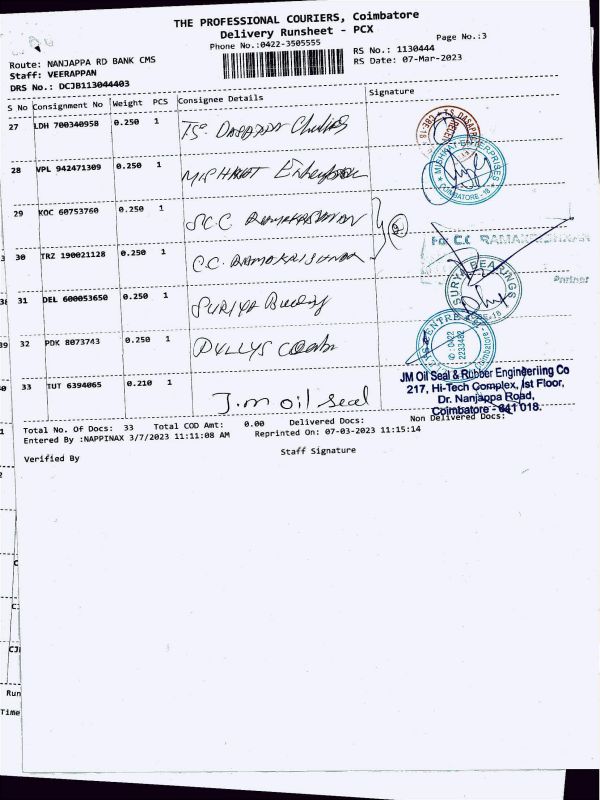 THE PROFESSIONAL COURIERS, Coimbatore
Delivery Runsheet - PCX
Phone No.:0422-3505555
Page No.:3
Route: NANJAPPA RD BANK CMS
RS No.: 1130444
Staff: VEERAPPAN
RS Date: 07-Mar-2023
DRS No.: DCJB113044403
S No Consignment No Weight PCS Consignee Details Signature
27 LDH 700340958 0.250 1
28 VPL 942471309 0.250 1
MISHKAT ENTERPRISES
COIMBATORE - 18
29 KOC 60753760 0.250 1
30 TRZ 190021128 0.250 1 C.C. RAMAKRISHNAN
For C.C RAMAKRISHNAN
Partner
31 DEL 600053650 0.250 1
SURYA BEARINGS
32 PDK 8073743 0.250 1
0422
2233482
33 TUT 6394065 0.210 1 J.m oil seal
JM Oil Seal & Rubber Engineeriing Co
217, Hi-Tech Complex, Ist Floor,
Dr. Nanjappa Road,
Coimbatore - 641 018.
Total No. Of Docs: 33 Total COD Amt: 0.00 Delivered Docs: Non Delivered Docs:
Entered By :NAPPINAX 3/7/2023 11:11:08 AM Reprinted On: 07-03-2023 11:15:14
Verified By Staff Signature
Run
Time